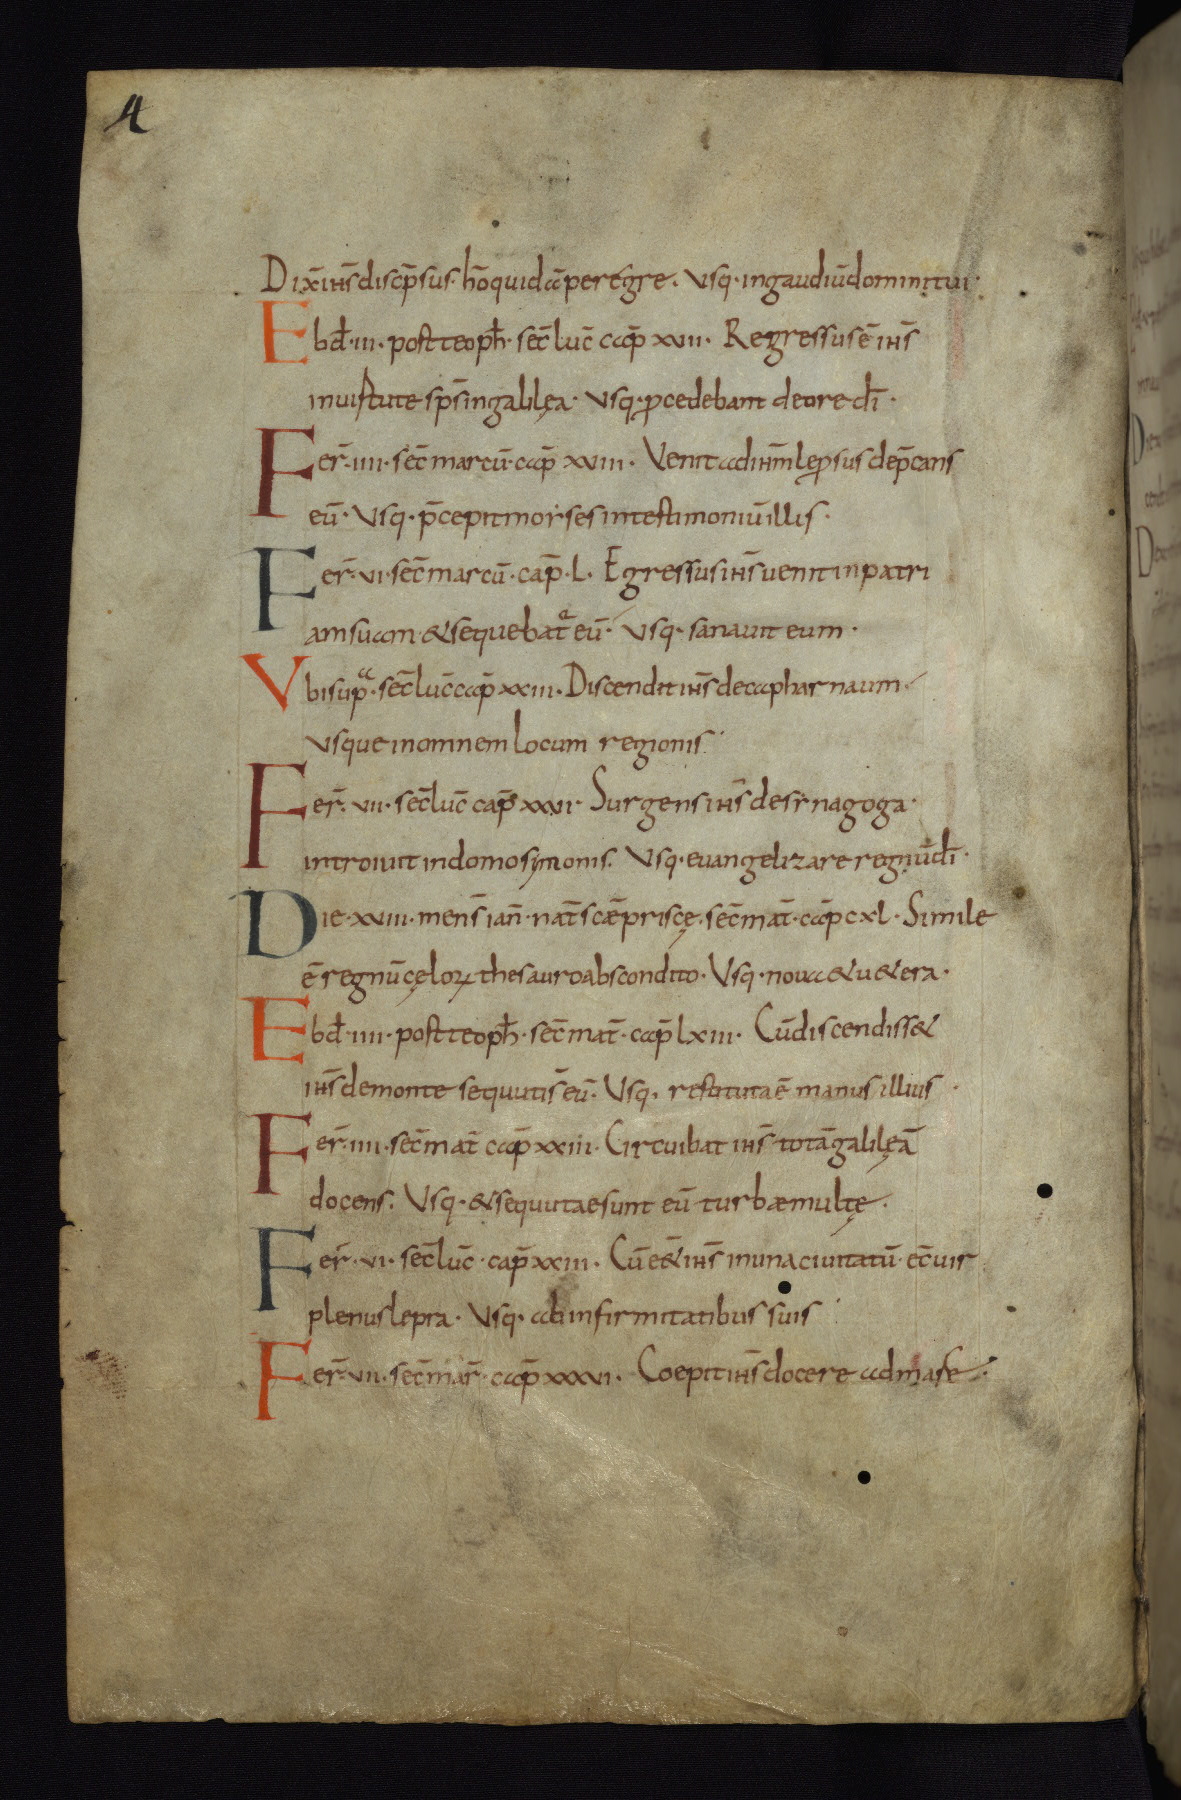 4
Dix̄ ih̄s discip̄ suis· hō quidā p̄eregre· Vsq· in gaudiū domini tui·
Ebd̄·iii· post teoph̄· sec̄ luc̄ cap̄ xvii· Regressus ē ih̄s
in uirtute sp̄s in galilęa· Vsq· procedebant de ore dī·
Fer̄·iiii· sec̄ marcū· cap̄ xviii· Venit ad ih̄m leprosus dep̄cans
eū· Vsq· p̄cepit moyses in testimoniū illis·
Fer̄·vi· sec̄ marcū· cap̄·L· Egressus ih̄s uenit in patri
am suam· & sequebat̄ eū· Vsq· sanauit eum·
Vbi sup̄a· sec̄ luc̄ cap̄ xxiii· Discendit ih̄s de capharnaum·
Vsque in omnem locum regionis·
Fer̄·vii· sec̄ luc̄ cap̄ xxvi· Surgens ih̄s de synagoga·
introiuit in domo symonis· Vsq· euangelizare regnū dī·
Die·xviii· mens̄ ian̄· nat̄ scæ priscę· sec̄ mat̄· cap̄ cxl· Simile
ē regnū cęloꝝ thesauro abscondito· Vsq· noua & u&era·
Ebd̄·iiii· post teoph̄· sec̄ mat̄· cap̄ lxiii· Cū discendiss&
ih̄s de monte sequuti s̄ eū· Vsq· restituta ē manus illius·
Fer̄·iiii· sec̄ mat̄ cap̄ xxiii· Circuibat ih̄s totā galilęā
docens· Vsq· & sequutae sunt eū turbæ multę·
Fer̄·vi· sec̄ luc̄· cap̄ xxiii· Cū e&̄ ih̄s in una ciuitatū· ec̄ uir
plenus lepra· Vsq· ab infirmitatibus suis
Fer̄·vii· sec̄ mar̄· cap̄ xxxvi· Coepit ih̄s docere ad mare·